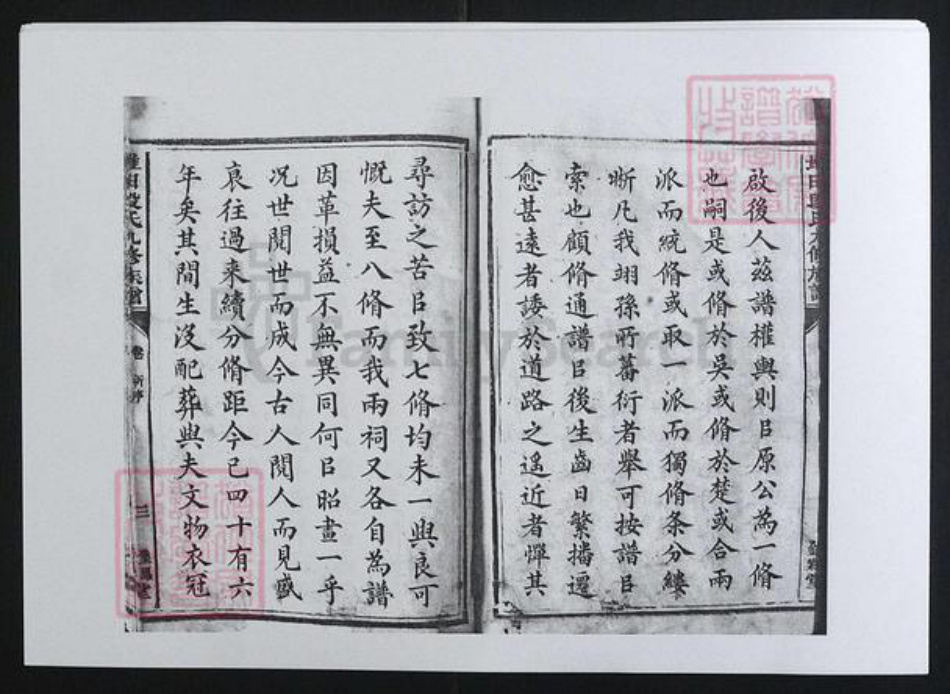 啟後人茲譜權輿則㠯原公為一脩
也嗣是或脩於吳或脩於楚或合兩
派而統脩或取一派而獨脩条分縷
晰凡我翊孫所蕃衍者舉可按譜㠯
索也顧脩通譜㠯後生齒日繁播遷
愈甚遠者諉於道路之遙近者憚其
尋訪之苦㠯致七脩均未一與良可
慨夫至八脩而我兩祠又各自為譜
因革損益不無異同何㠯昭畫一乎
况世閱世而成今古人閱人而見盛
衰往過来續分脩距今已四十有六
年矣其間生沒配葬與夫文物衣冠
氏九修族譜
卷
新序
三
FamilySearch